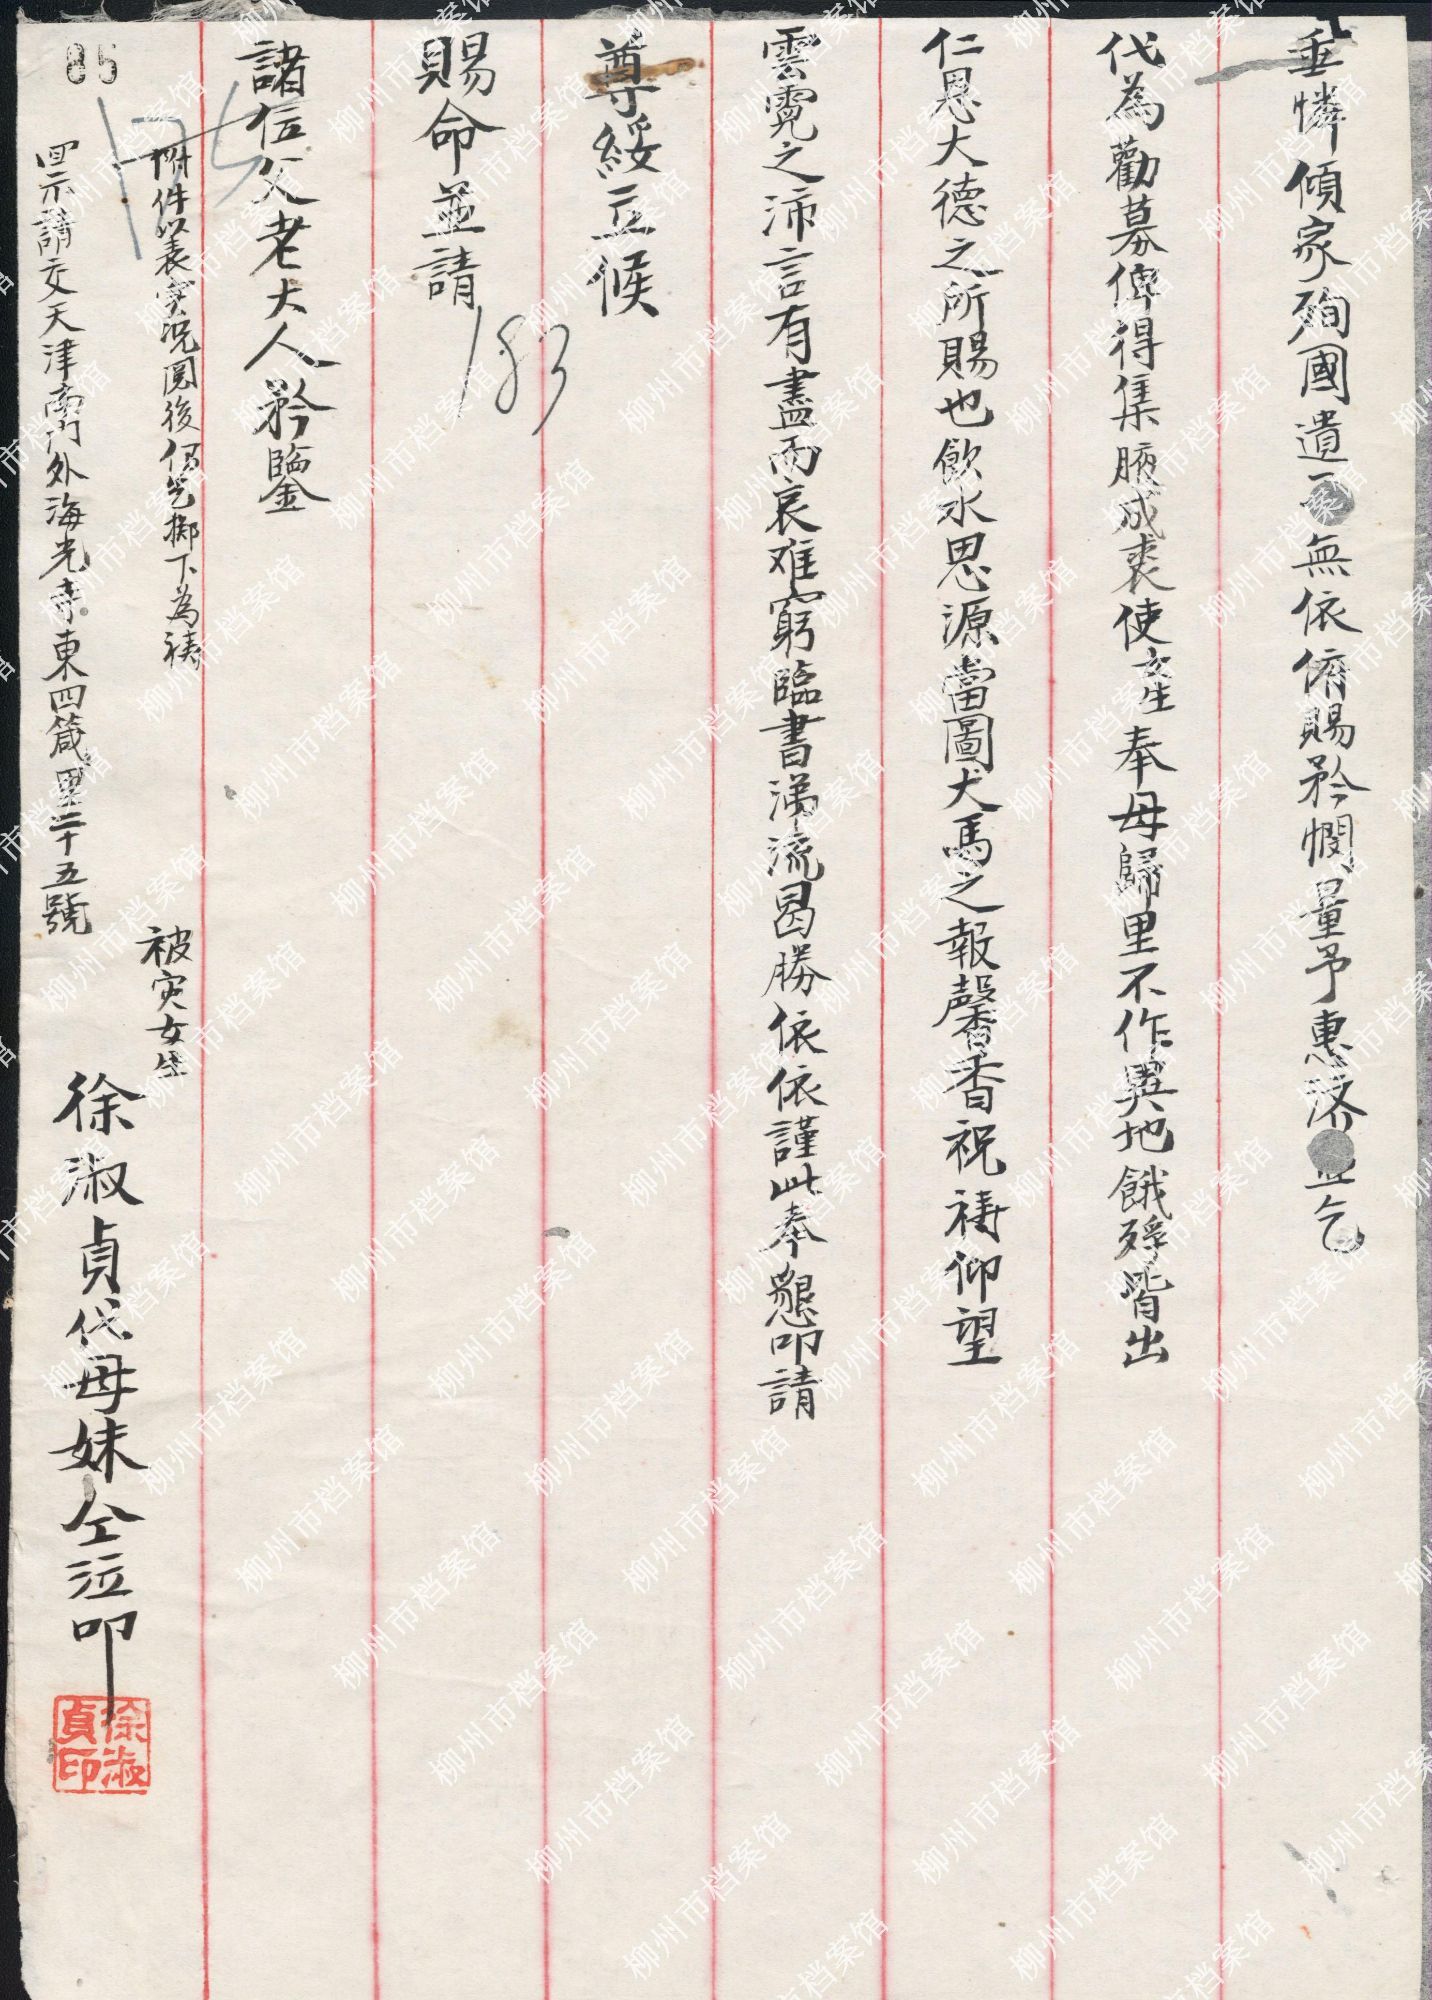 垂憐傾家殉國遺無依俯賜矜憫量予惠濟並乞
代為勸募俾得集腋成裘使生奉母歸里不作異地餓殍皆出
仁恩大德之所賜也飲水思源當圖犬馬之報馨香祝禱仰望
雲霓之沛言有盡而哀难窮臨書涕流曷勝依依謹此奉懇叩請
尊綏立候
賜命並請
183
諸位父老大人矜鑒
附件以表实况閱後仍乞擲下為禱
回示請交天津南门外海光寺東四箴里二十五號
被灾女生
徐淑貞代母妹仝泣叩
徐淑貞印
85
175
柳州市档案馆